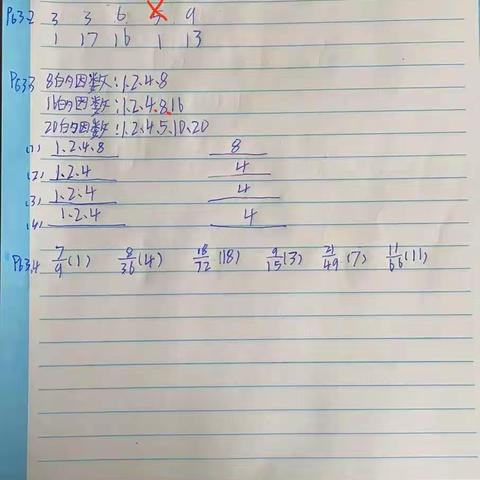 P63.2 3 3 6 5 9
1 17 16 1 13
P63.3 8的因数:1.2.4.8
16的因数:1.2.4.8.16
20的因数:1.2.4.5.10.20
(1) 1.2.4.8 8
(2) 1.2.4 4
(3) 1.2.4 4
(4) 1.2.4 4
P63.4 7/9(1) 8/36(4) 18/72(18) 9/15(3) 21/49(7) 11/66(11)